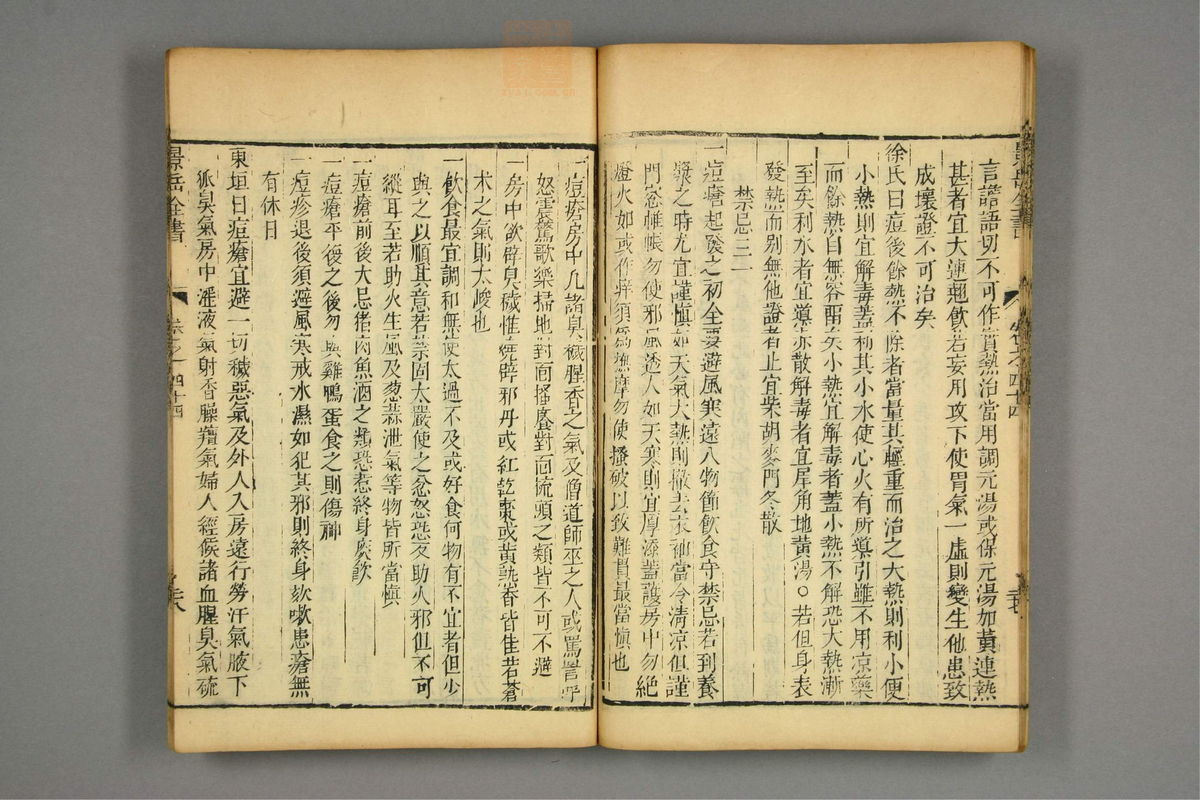 言譫語切不可作實熱治當用調元湯或保元湯加黃連熱
甚者宜大連翹飲若妄用攻下使胃氣一虛則變生他患致
成壞證不可治矣
徐氏曰痘後餘熱不除者當量其輕重而治之大熱則利小便
小熱則宜解毒蓋利其小水使心火有所導引雖不用凉藥
而餘熱自無容留矣小熱宜解毒者蓋小熱不解恐大熱漸
至矣利水者宜導赤散解毒者宜犀角地黃湯○若但身表
發熱而別無他證者止宜柴胡麥門冬散
禁忌三二
一痘瘡起發之初全要避風寒遠人物節飲食守禁忌若到養
漿之時尤宜謹慎如天氣大熱則撤去衣衲當令清凉但謹
門窓帷帳勿使邪風透人如天寒則宜厚添蓋護房中勿絕
燈火如或作痒須爲撫摩勿使搔破以致難貫最當慎也
景岳全書 卷之四十四
一痘瘡房中凡諸臭穢腥香之氣及僧道師巫之人或罵詈呼
怒震驚歌樂掃地對面搔癢對面梳頭之類皆不可不避
一房中欲辟臭穢惟燒辟邪丹或紅乾棗或黃熟香皆佳若蒼
术之氣則太峻也
一飲食最宜調和無使太過不及或好食何物有不宜者但少
與之以順其意若禁固太嚴使之忿怒恐反助火邪但不可
縱耳至若助火生風及葱蒜泄氣等物皆所當慎
一痘瘡前後大忌猪肉魚酒之類恐惹終身痰飲
一痘瘡平復之後勿與雞鴨蛋食之則傷神
一痘疹退後須避風寒戒水濕如犯其邪則終身欬嗽患瘡無
有休日
東垣曰痘瘡宜避一切穢惡氣及外人入房遠行勞汗氣腋下
狐臭氣房中淫液氣射香臊羶氣婦人經候諸血腥臭氣硫
景岳全書 卷之四十四